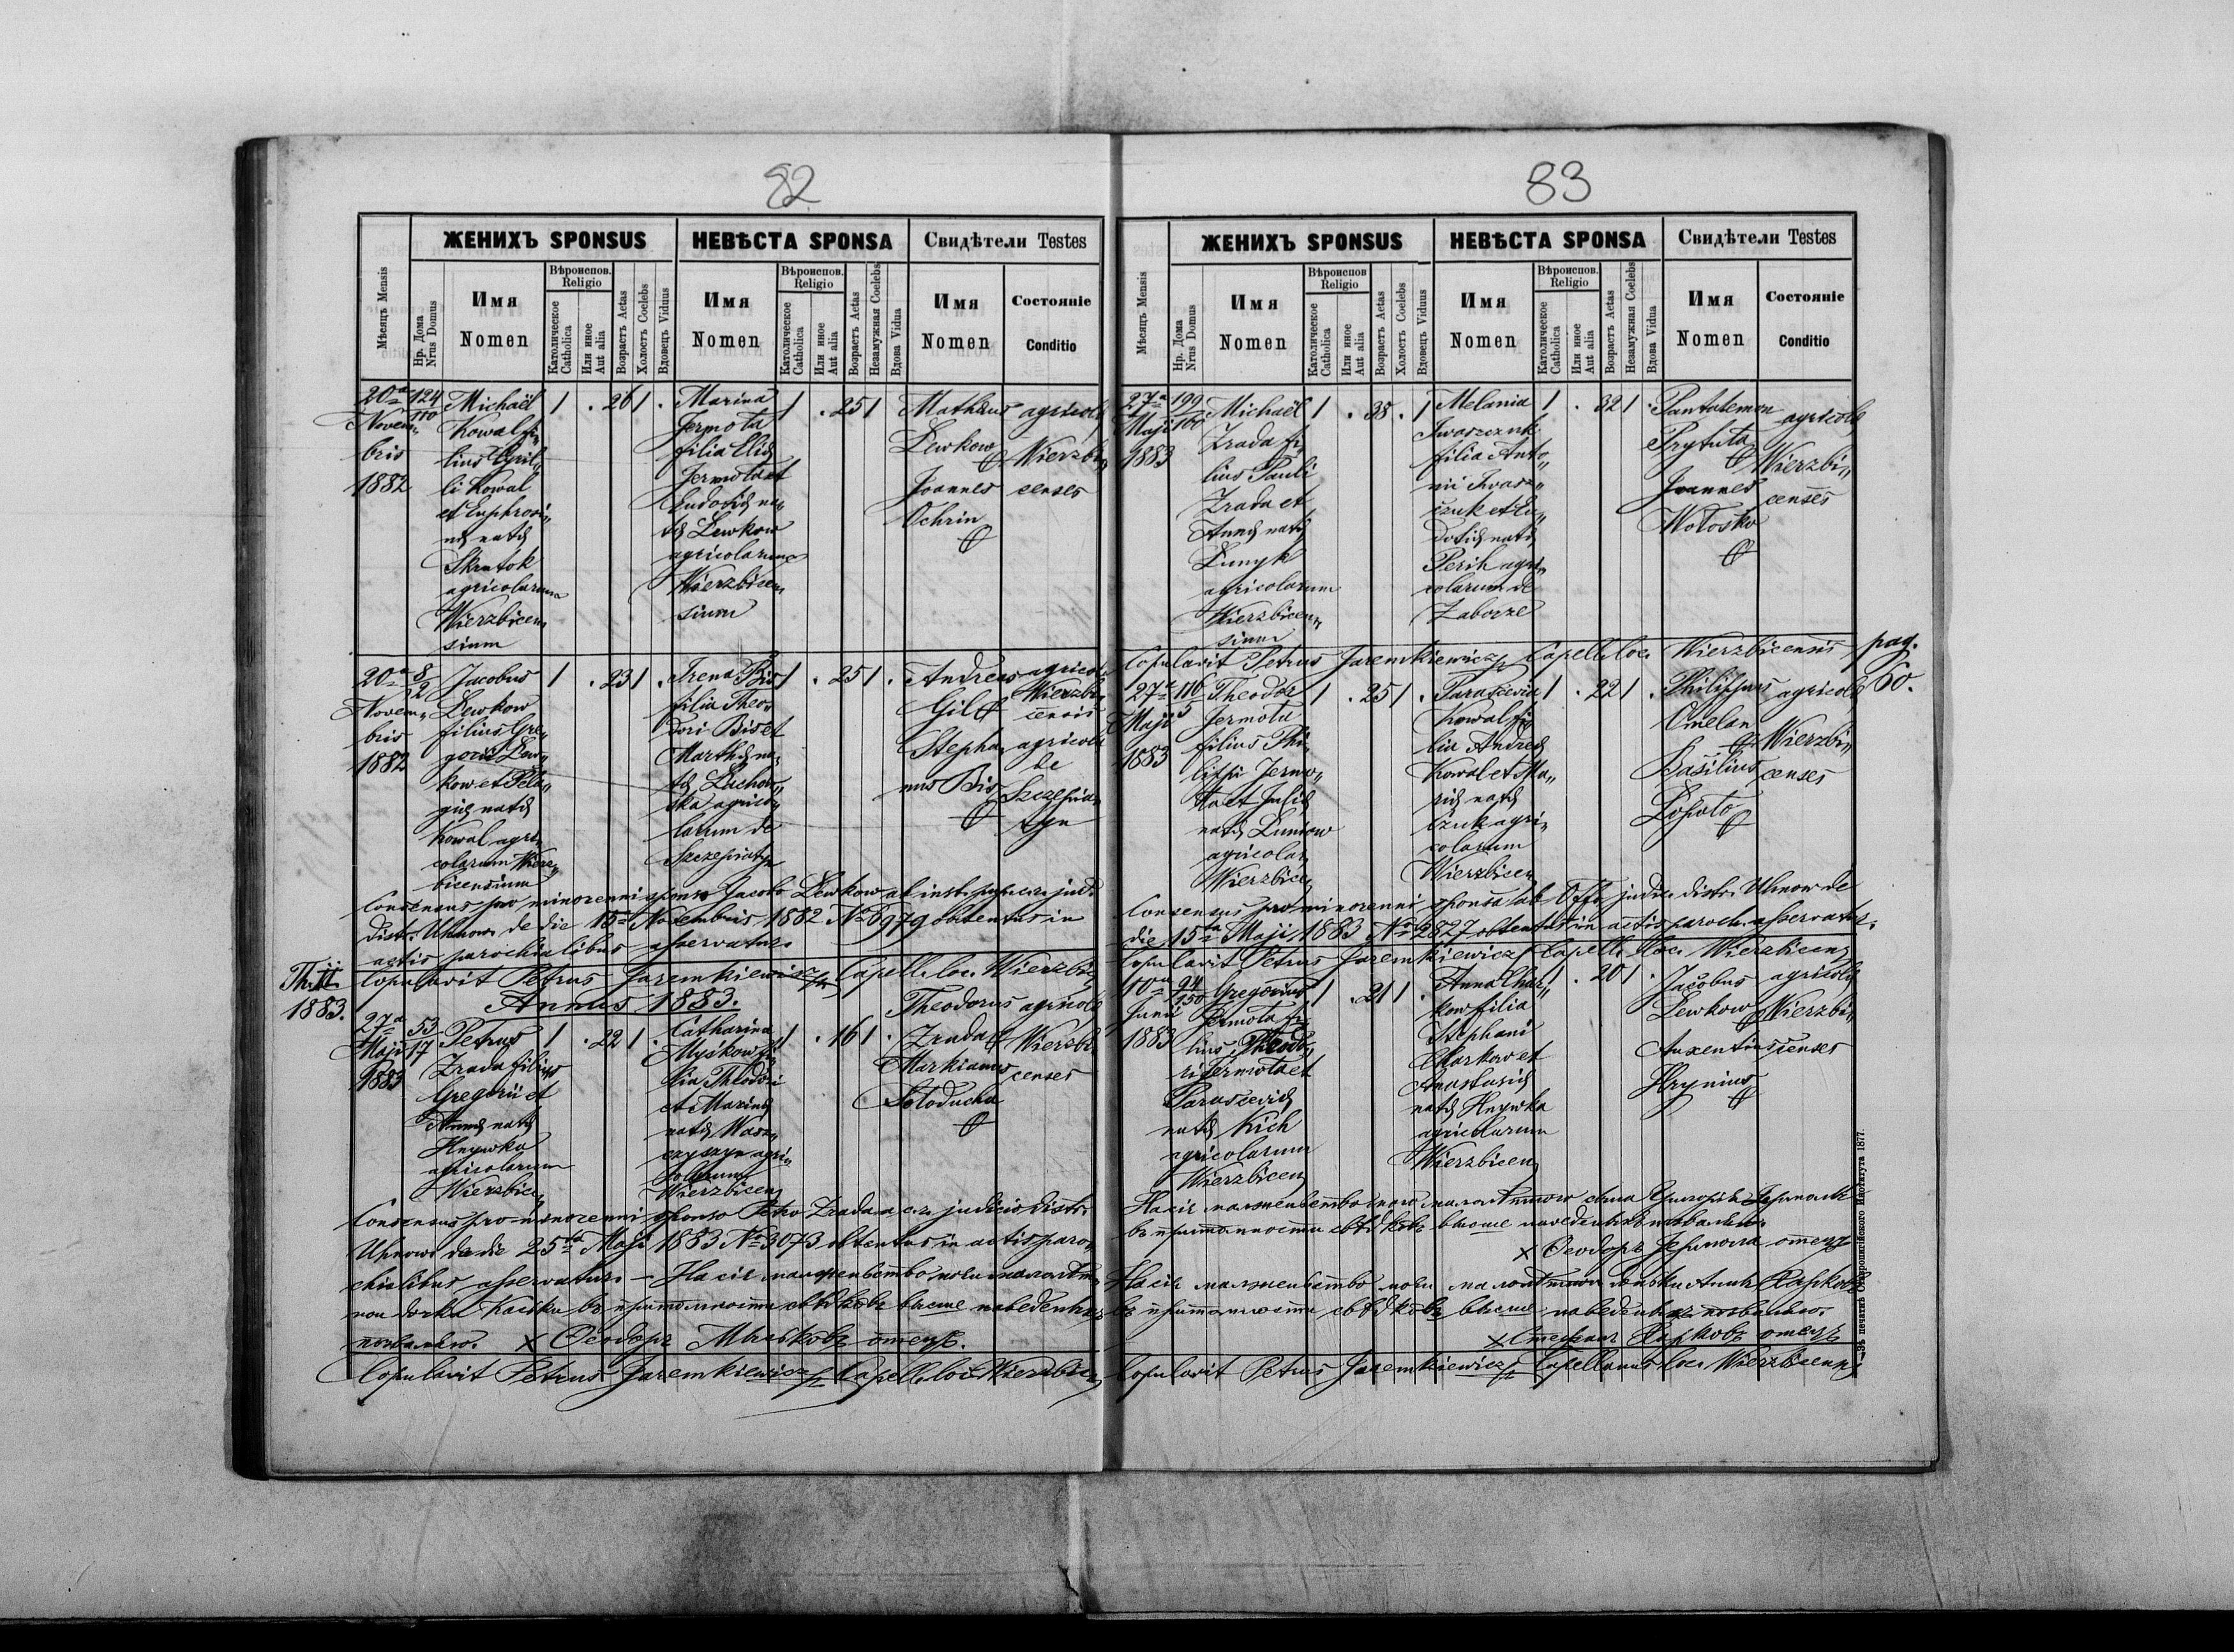 82
ЖЕНИХЪ SPONSUS
НЕВѢСТА SPONSA
Свидѣтели Testes
Мѣсяцъ Mensis
Нр. Дома
Nrus Domus
Имя
Nomen
Вѣроиспов.
Religio
Католическое
Catholica
Или иное
Aut alia
Возрастъ Aetas
Холостъ Coelebs
Вдовецъ Viduus
Имя
Nomen
Вѣроиспов.
Religio
Католическое
Catholica
Или иное
Aut alia
Возрастъ Aetas
Незамужная Coelebs
Вдова Vidua
Имя
Nomen
Состояніе
Conditio
20a
Novem„
bris
1882
124
110
Michaël
Kowal fi„
lius Cyril„
li Kowal
et Euphrosi„
nę natę
Skrutok
agricolarum
Wierzbicen
sium
1 . 26 1 .
Marina
Jermota
filia Elię
Jermota et
Eudocię na„
tę Lewkow
agricolarum
Wierzbicen
sium
1 . 25 1
Mathęus
Lewkow
Joannes
Ochrin
agricolę
Wierzbi„
censes
20a
Novem„
bris
1882
8
2
Jacobus
Lewkow
filius Gre„
gorii Lew„
kow et Pela„
gię natę
Kowal agri„
colarum Wierz„
bicensium
1 . 23 1 .
Irena Bis
filia Theo„
dori Bis et
Marthę na„
tę Lachow„
ska agrico„
larum de
Szczepiatyn
1 . 25 1 .
Andreas
Gil
Stepha„
nus Bis
agricola
Wierzbi„
censis
agricola
de
Szczepia„
tyn
Consensus pro minorenni sponso Jacobo Lewkow ab inst. pupern. judi.
distr. Uhnow de die 15a Novembris 1882 No 6979 obtentus in
actis parochialibus asservatur.
Copulavit Petrus Jaremkiewicz Capell. loc. Wierzbic„
Th. II.
1883.
Annus 1883.
27a
Maji
1883
53
17
Petrus
Zrada filius
Gregorii et
Annę natę
Hnywka
agricolarum
Wierzbicen
1 . 22 1 .
Catharina
Myśkow fi„
lia Theodori
et Marinę
natę Wasz„
czyszyn agri„
colarum
Wierzbicen
1 . 16 1 .
Theodorus
Zrada
Markianus
Sołoducha
agricolę
Wierzbi„
censes
Consensus pro minorenni sponso Petro Zrada a c. r. judicio distr.
Uhnow de die 25ta Maji 1883 No 3073 obtentus in actis paro„
chialibus asservatur. — На сіе малженьство моеи малолѣт„
ной дочки Каськи въ притомности свѣдковъ высше наведеныхъ
позваляю. × Ѳеодоръ Мыськовъ отець.
Copulavit Petrus Jaremkiewicz Capell. loc. Wierzbicen
83
ЖЕНИХЪ SPONSUS
НЕВѢСТА SPONSA
Свидѣтели Testes
Мѣсяцъ Mensis
Нр. Дома
Nrus Domus
Имя
Nomen
Вѣроиспов
Religio
Католическое
Catholica
Или иное
Aut alia
Возрастъ Aetas
Холостъ Coelebs
Вдовецъ Viduus
Имя
Nomen
Вѣроиспов.
Religio
Католическое
Catholica
Или иное
Aut alia
Возрастъ Aetas
Незамужная Coelebs
Вдова Vidua
Имя
Nomen
Состояніе
Conditio
27a
Maji
1883
199
160
Michaël
Zrada fi„
lius Pauli
Zrada et
Annę natę
Lunyk
agricolarum
Wierzbicen„
sium
1 . 38 . 1
Melania
Iwaszczuk
filia Anto„
nii Iwasz„
czuk et Eu„
dokię natę
Perih agri„
colarum de
Zaborze
1 . 32 1 .
Pantalemon
Prytuta
Joannes
Wołosko
agricolę
Wierzbi„
censes
Copulavit Petrus Jaremkiewicz Capell. loc. Wierzbicensis
pag.
60.
27a
Maji
1883
116
5
Theodor
Jermota
filius Phi„
lippi Jermo„
ta et Julię
natę Luniow
agricolar.
Wierzbice„
1 . 25 1 .
Parascevia
Kowal fi„
lia Andreę
Kowal et Ma„
rię natę
Czuk agri„
colarum
Wierzbicen
1 . 22 1 .
Philippus
Omelan
Basilius
Łopoto
agricolę
Wierzbi„
censes
Consensus pro minorenni sponsa ab Offo. judic. distr. Uhnow de
die 15a Maji 1883 No 2827 obtentus in actis paroch. asservatur.
Copulavit Petrus Jaremkiewicz Capell. loc. Wierzbicen
10a
Junii
1883
94
150
Gregorius
Jermota fi„
lius Theodo„
ri Jermota et
Parascevię
natę Kich
agricolarum
Wierzbicen
1 . 21 1 .
Anna Char„
kow filia
Stephani
Charkow et
Anastasię
natę Hnywka
agricolarum
Wierzbicen
1 . 20 1 .
Jacobus
Lewkow
Auxentius
Hrynius
agricolę
Wierzbi„
censes
На сіе малженьство мого малолѣтного сына Григорія Јермоты
въ притомности свѣдковъ высше наведеныхъ позваляю.
× Ѳеодоръ Јермота отець
На сіе малженьство моеи малолѣтнои доньки Анны Харковъ
въ притомности свѣдковъ высше наведеныхъ позваляю.
× Стефанъ Харковъ отець
Copulavit Petrus Jaremkiewicz Capellanus loc. Wierzbicensis
Зъ печатнѣ Ставропигійского Института 1877.